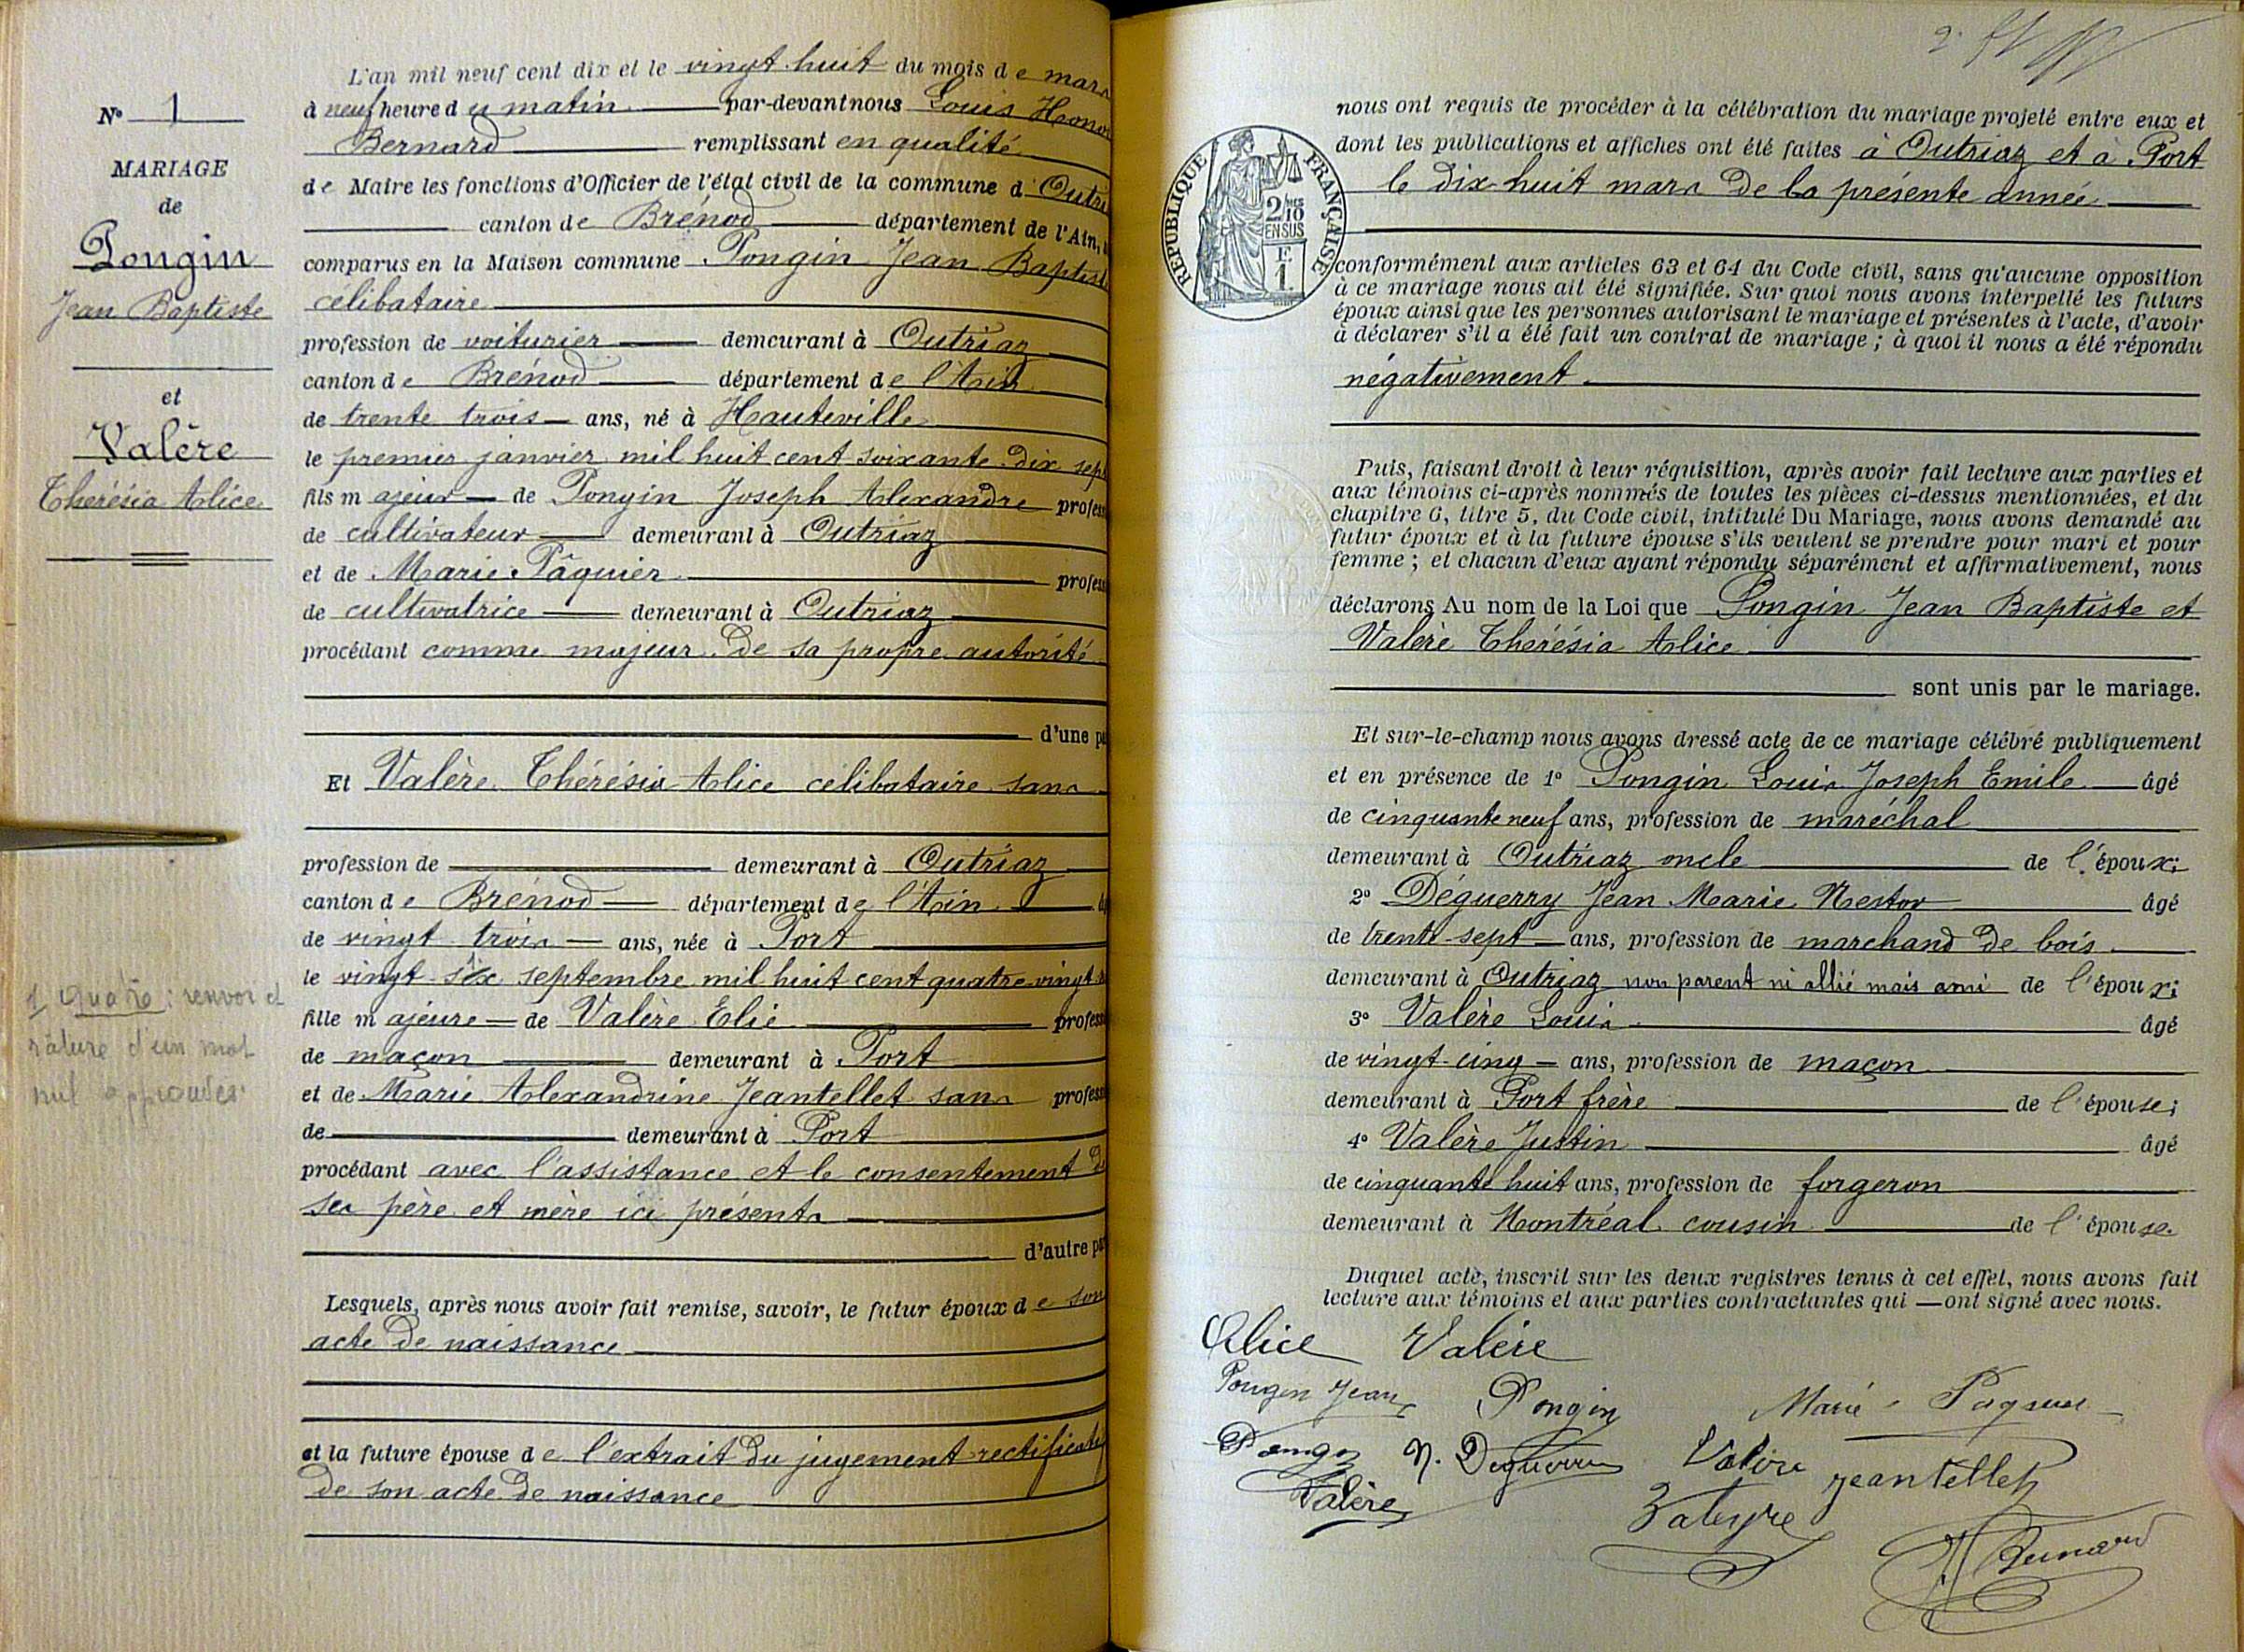 N° 1
MARIAGE
de
Pongin
Jean Baptiste
et
Valère
Thérésia Alice
1 quatre : renvoi et
râture d'un mot
nul approuvés
L'an mil neuf cent dix et le vingt-huit du mois de mars
à neuf heure du matin par-devant nous Louis
Bernard remplissant en qualité
de Maire les fonctions d'Officier de l'état civil de la commune d'Outri
canton de Brénod département de l'Ain,
comparus en la Maison commune Pongin Jean Baptiste
célibataire
profession de voiturier demeurant à Outriaz
canton de Brénod département de l'Ain
de trente trois ans, né à Hauteville
le premier janvier mil huit cent soixante-dix sept
fils majeur de Pongin Joseph Alexandre profess
de cultivateur demeurant à Outriaz
et de Marie Pâquier profess
de cultivatrice demeurant à Outriaz
procédant comme majeur de sa propre autorité
d'une pa
Et Valère Thérésia Alice célibataire sans
profession de demeurant à Outriaz
canton de Brénod département de l'Ain
de vingt trois ans, née à Port
le vingt six septembre mil huit cent quatre-vingt
fille majeure de Valère Elie profess
de maçon demeurant à Port
et de Marie Alexandrine Jeantellet sans profess
de demeurant à Port
procédant avec l'assistance et le consentement de
ses père et mère ici présents
d'autre par
Lesquels, après nous avoir fait remise, savoir, le futur époux de son
acte de naissance
et la future épouse de l'extrait du jugement rectificatif
de son acte de naissance
2.
nous ont requis de procéder à la célébration du mariage projeté entre eux et
dont les publications et affiches ont été faites à Outriaz et à Port
le dix-huit mars de la présente année
RÉPUBLIQUE FRANÇAISE
2/10
EN SUS
F.
1.
conformément aux articles 63 et 64 du Code civil, sans qu'aucune opposition
à ce mariage nous ait été signifiée. Sur quoi nous avons interpellé les futurs
époux ainsi que les personnes autorisant le mariage et présentes à l'acte, d'avoir
à déclarer s'il a été fait un contrat de mariage ; à quoi il nous a été répondu
négativement.
Puis, faisant droit à leur réquisition, après avoir fait lecture aux parties et
aux témoins ci-après nommés de toutes les pièces ci-dessus mentionnées, et du
chapitre 6, titre 5, du Code civil, intitulé Du Mariage, nous avons demandé au
futur époux et à la future épouse s'ils veulent se prendre pour mari et pour
femme ; et chacun d'eux ayant répondu séparément et affirmativement, nous
déclarons Au nom de la Loi que Pongin Jean Baptiste et
Valère Thérésia Alice
sont unis par le mariage.
Et sur-le-champ nous avons dressé acte de ce mariage célébré publiquement
et en présence de 1° Pongin Louis Joseph Emile âgé
de cinquante neuf ans, profession de maréchal
demeurant à Outriaz oncle de l'époux;
2° Déguerry Jean Marie Nestor âgé
de trente-sept ans, profession de marchand de bois
demeurant à Outriaz non parent ni allié mais ami de l'époux;
3° Valère Louis âgé
de vingt-cinq ans, profession de maçon
demeurant à Port frère de l'épouse;
4° Valère Justin âgé
de cinquante huit ans, profession de forgeron
demeurant à Montréal cousin de l'épouse.
Duquel acte, inscrit sur les deux registres tenus à cet effet, nous avons fait
lecture aux témoins et aux parties contractantes qui — ont signé avec nous.
Alice Valère
Pongin Jean Pongin Marie Paquier
Pongin N. Deguerry Valère Jeantellet
Valère
Bernard